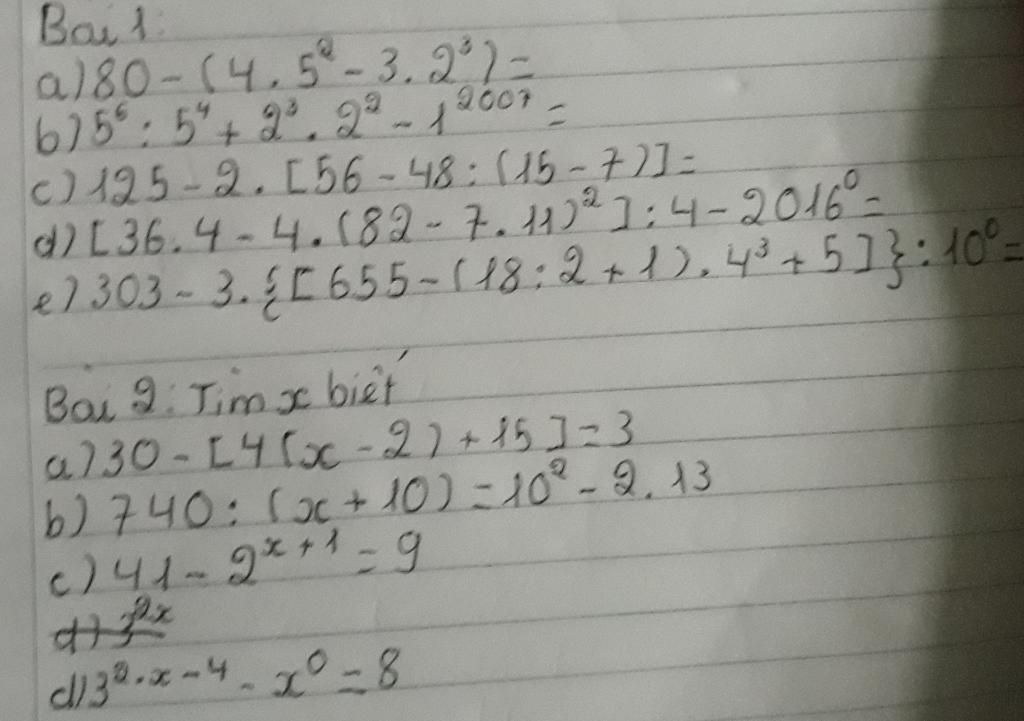 Bài 1:
a) 80 - (4 . 5² - 3 . 2³) =
b) 5⁶ : 5⁴ + 2³ . 2² - 1²⁰⁰⁷ =
c) 125 - 2 . [56 - 48 : (15 - 7)] =
d) [36 . 4 - 4 . (82 - 7 . 11)²] : 4 - 2016⁰ =
e) 303 - 3 . {[655 - (18 : 2 + 1) . 4³ + 5]} : 10⁰ =
Bài 2: Tìm x biết
a) 30 - [4(x - 2) + 15] = 3
b) 740 : (x + 10) = 10² - 2 . 13
c) 41 - 2ˣ⁺¹ = 9
d) 3²ˣ
d) 3^{2.x-4} - x⁰ = 8